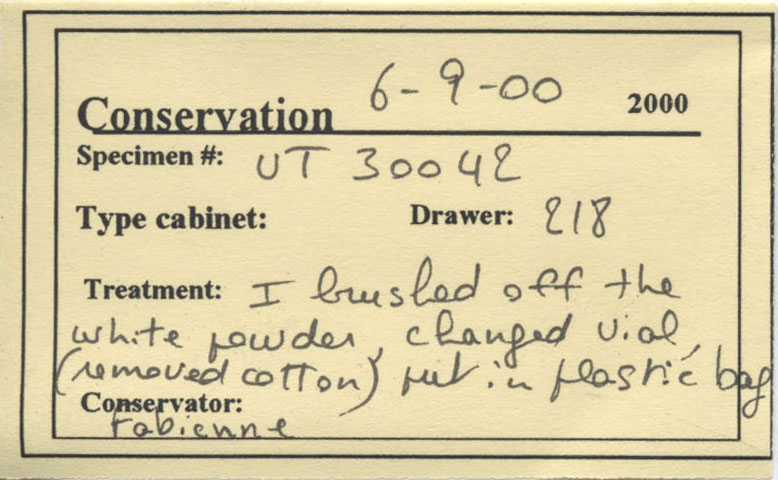 Conservation 6-9-00 2000
Specimen #: UT 30042
Type cabinet: Drawer: 218
Treatment: I brushed off the
white powder, changed vial,
(removed cotton) put in plastic bag
Conservator:
Fabienne